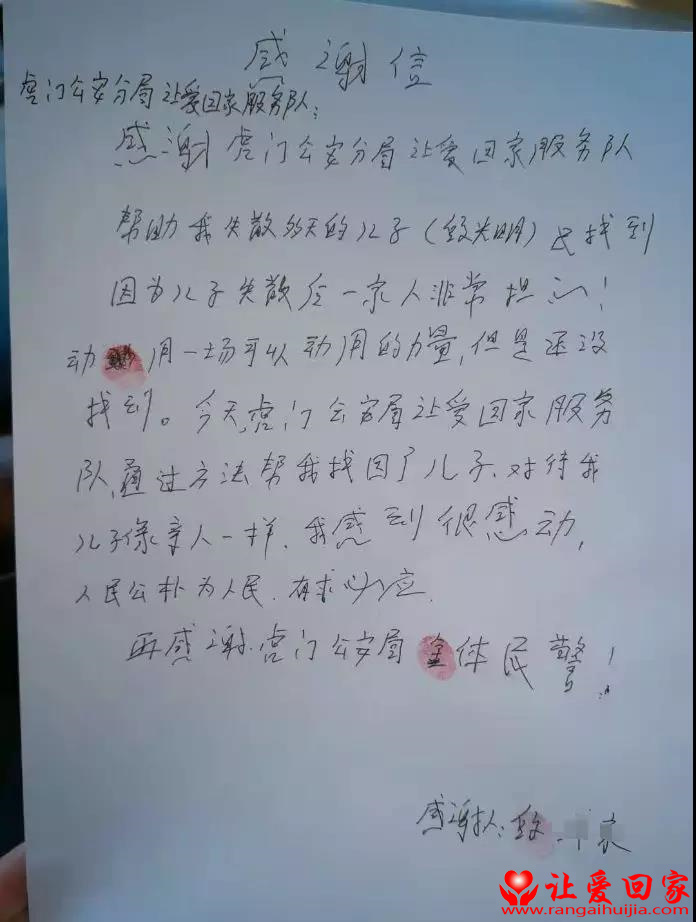 感谢信
虎门公安分局让爱回家服务队:
感谢虎门公安分局让爱回家服务队
帮助我失散 天的儿子( 明) 找到
因为儿子失散后一家人非常担心!
动 用一场可以动用的力量,但是还没
找到。今天,虎门公安局让爱回家服务
队,通过方法帮我找回了儿子、对待我
儿子像亲人一样.我感到很感动,
人民公朴为人民.有求必应.
再感谢.虎门公安局全体民警!
感谢人: 家
让爱回家
www.rangaihuijia.com